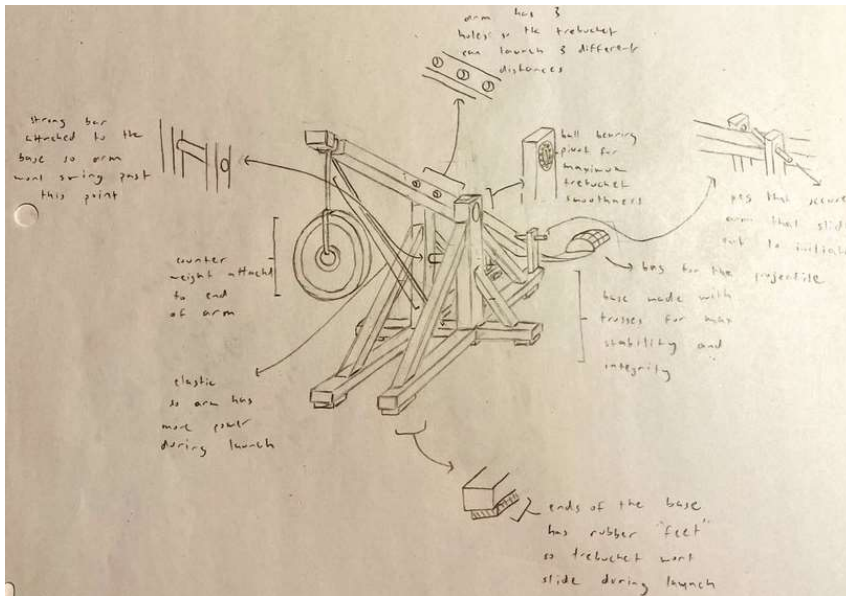 arm has 3
holes so the trebuchet
can launch 3 different
distances
strong bar
attached to the
base so arm
wont swing past
this point
ball bearing
pivot for
maximum
smoothness
peg that secures
arm that slides
out to
counter
weight attached
to end
of arm
bag for the projectile
base made with
trusses for max
stability and
integrity
elastic
so arm has
more power
during launch
ends of the base
has rubber "feet"
so wont
slide during launch